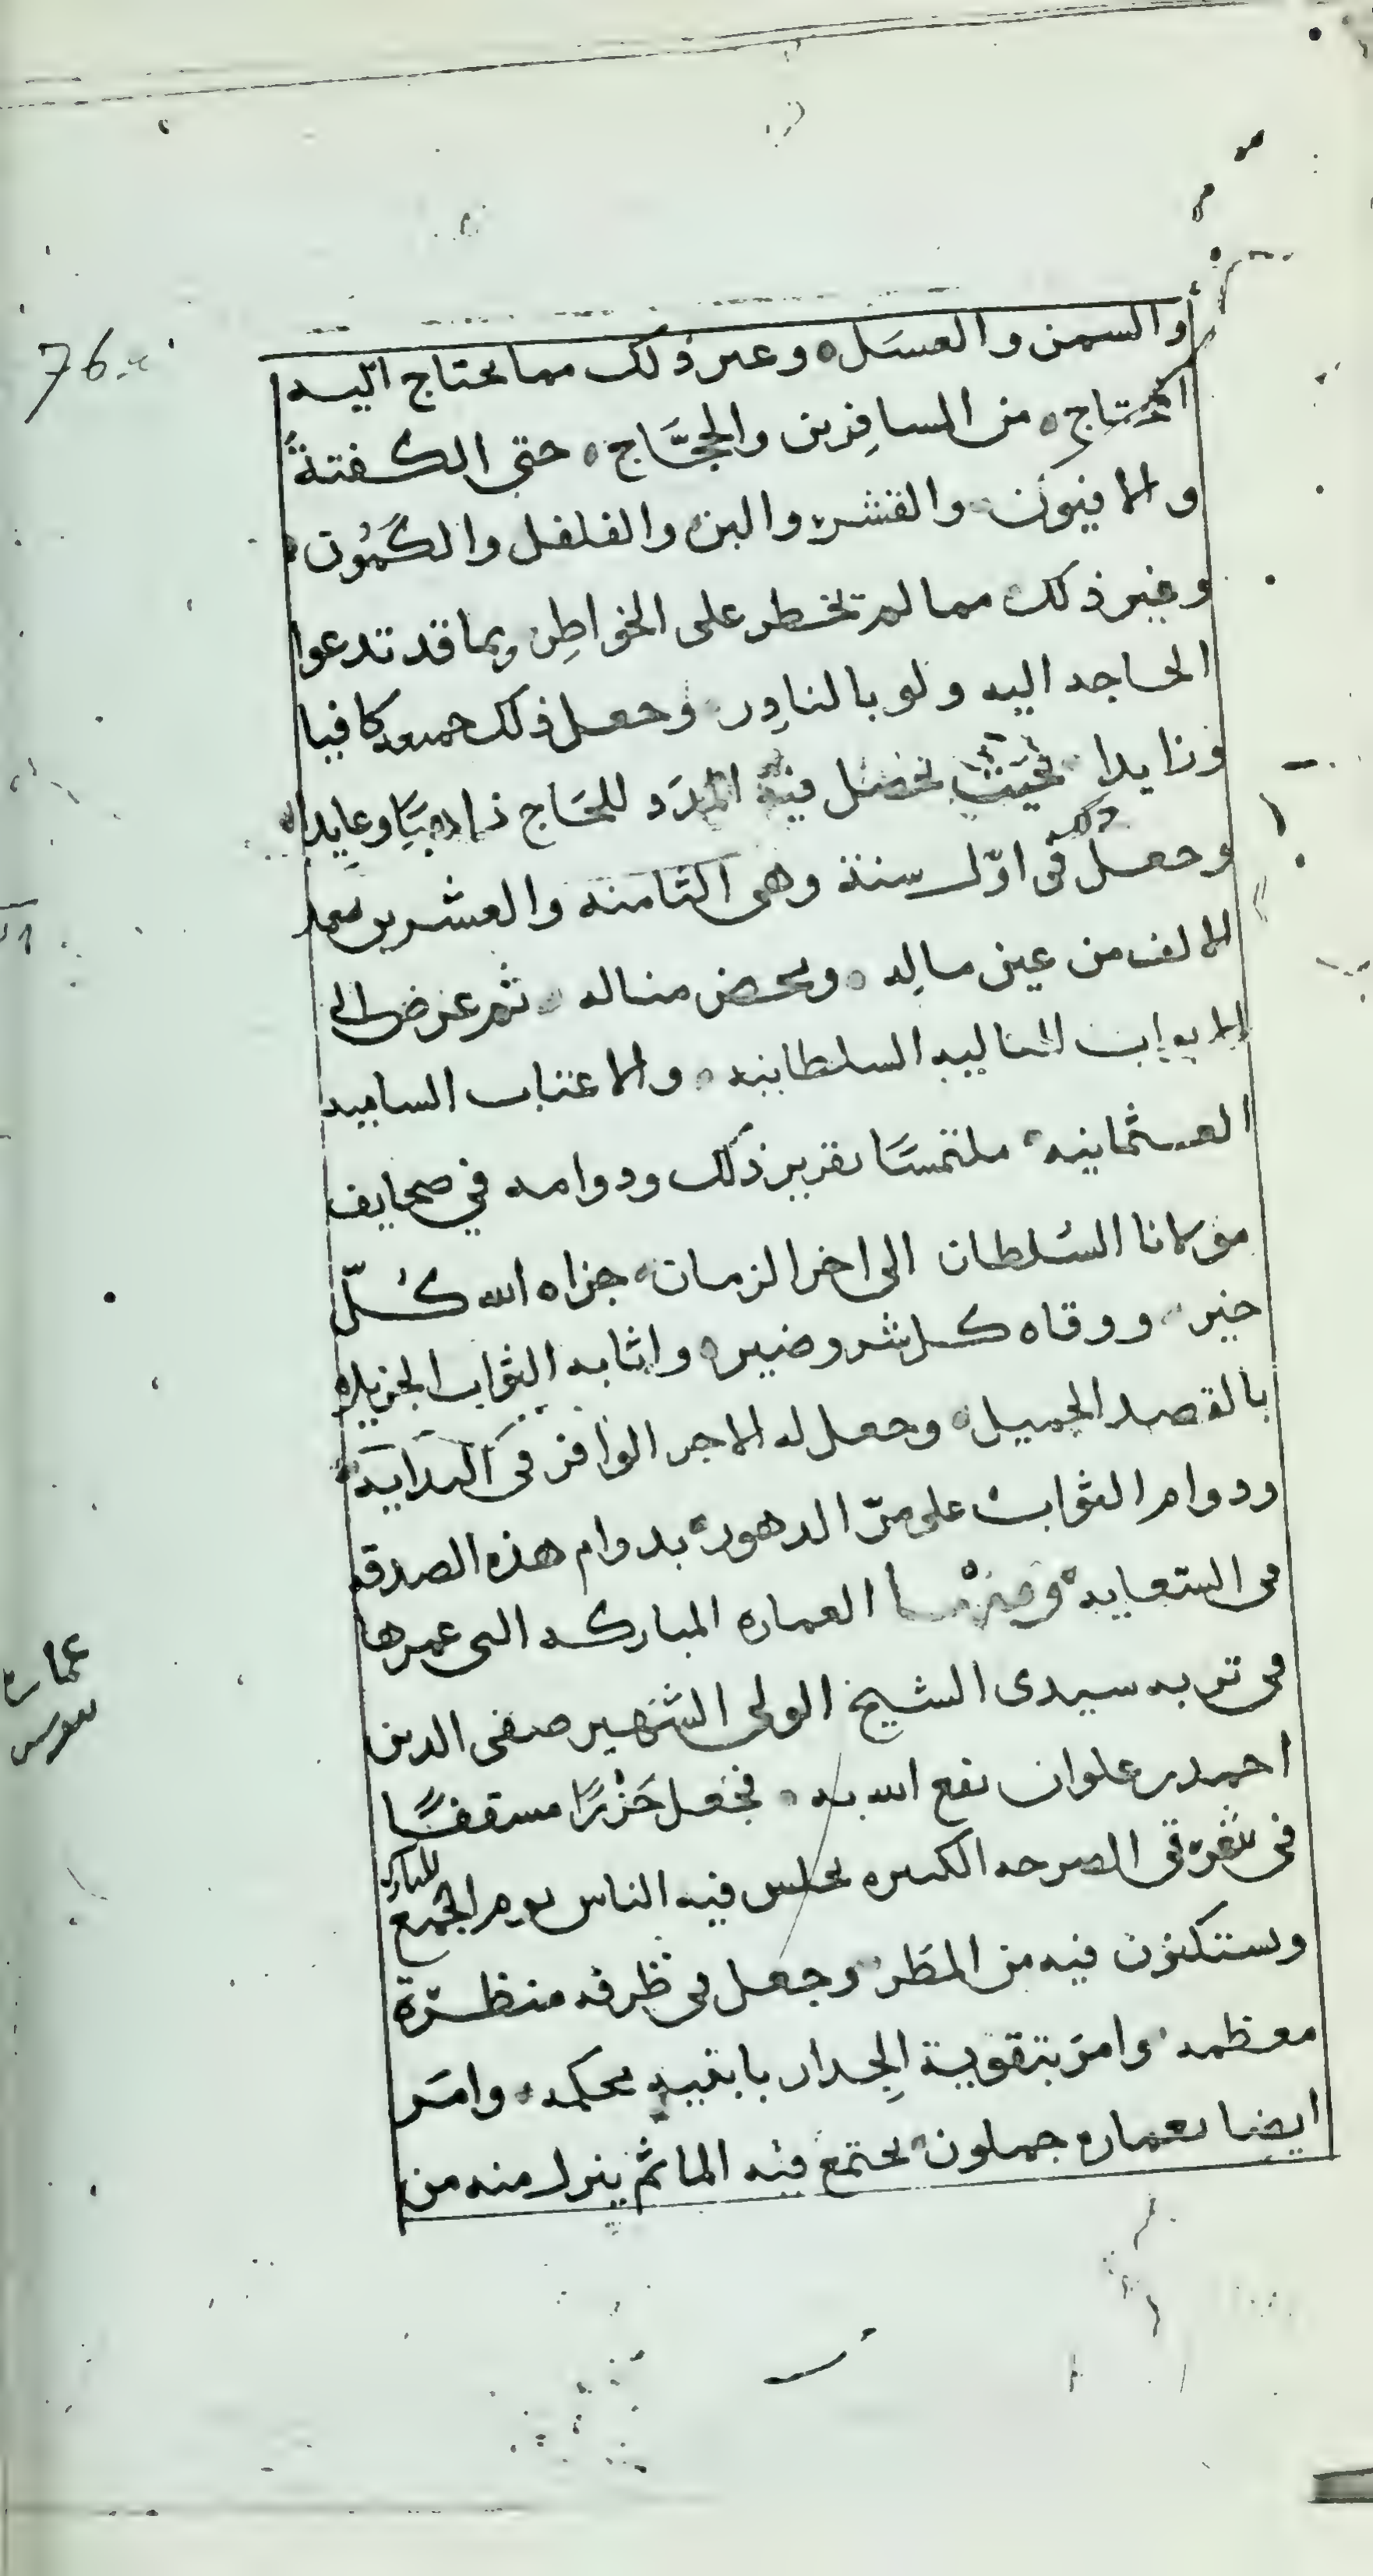 76
والسمن والعسل وعىر ذلك مما يحتاج اليه
المحتاج من المسافرين والحجّاج حتى الكفتة
والافيون والقشر والبن والفلفل والكمون
وغير ذلك مما لم تخطر على الخواطر وبما قد تدعوا
الحاجه اليه ولو بالنادر وجعل ذلك جميعه كافيا
وزايدا بحيث يحصل فيه المدد للحاج ذاهبا وعايدا
وجعل ذلك في اوّل سنة وهي الثامنة والعشرين بعد
الالف من عين ماله ومحض مناله ثم عرض الى
الابواب العاليه السلطانيه والاعتاب الساميه
العثمانيه ملتمسًا تقرير ذلك ودوامه في صحايف
مولانا السلطان الى اخر الزمان جزاه الله كُلّ
خير ووقاه كل شر وضير واثابه الثواب الجزيل
بالقصد الجميل وجعل له الاجر الوافر في البداية
ودوام الثواب على مرّ الدهور بدوام هذه الصدقه
في السعايه ومنها العماره المباركه التي عمرها
في تربه سيدى الشيخ الولي الشهير صفى الدين
احمد بن علوان نفع الله به فجعل حَزْرًا مسقفًا
في ثغره في الصرحه الكبيره يجلس فيه الناس يوم الجمع المبارك
ويستكنون فيه من المطر وجعل في ظرفه منظرة
معظمه وامر بتقوية الجدار بابنيه محكمه وامر
ايضا بعماره جملون يجتمع فيه الما ثم ينزل منه من
عمارة